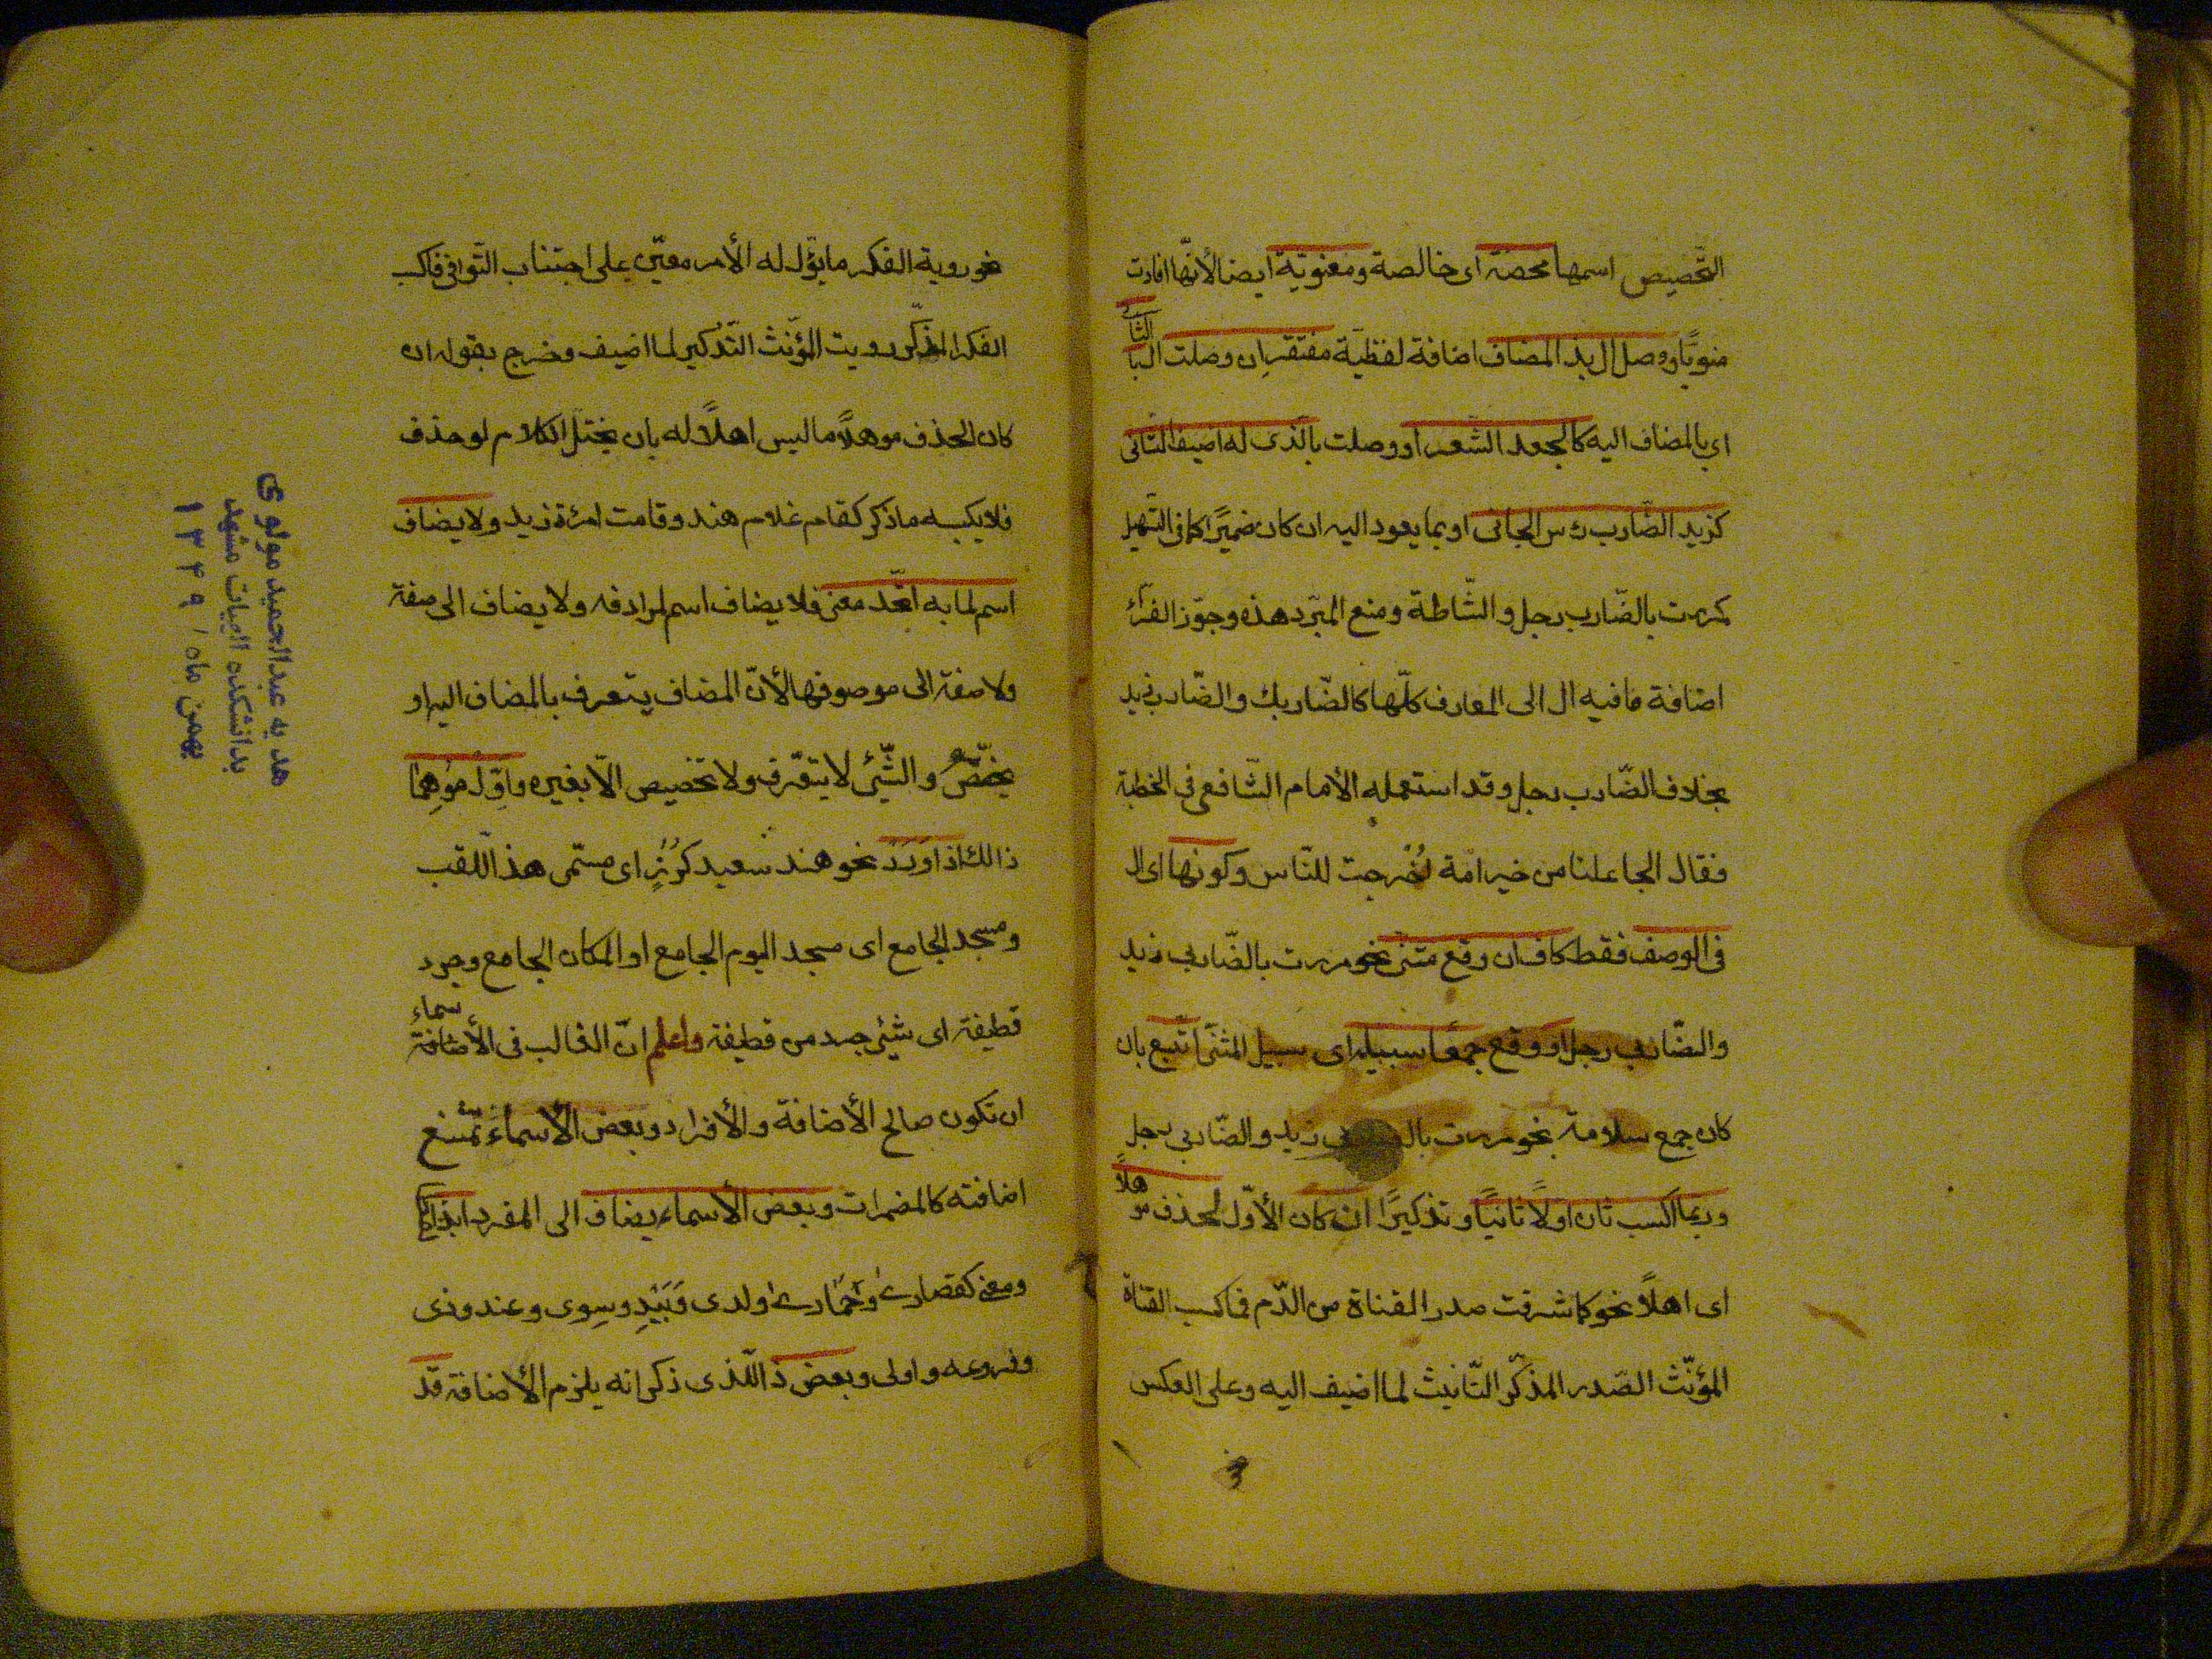 التّخصيص اسمها محضة اى خالصة ومعنويّة ايضا لأنّها افادت
معنويًّا ووصل ال بذ المضاف اضافة لفظيّة مفتقر ان وصلت الثان
اي بالمضاف اليه كالجعد الشّعر او وصلت بالّذى له اضيف الثّانى
كزيد الضّارب رئس الجانى او بما يعود اليه ان كان ضميرًا كما فى التّسهيل
كمررت بالضّارب رجل والشّاطمة ومنع المبرّد هذه وجوّز الفرّاء
اضافة مافيه ال الى المعارف كلّها كالضّاربك والضّارب زيد
بخلاف الضّارب رجل وقد استعمله الأمام الشّافعى فى الخطبة
فقال الجاعلنا من خير امّة اُخرجت للنّاس وكونها اى ال
فى الوصف فقط كاف ان وقع مثنى نحو مررت بالضّاربى زيد
والضّاربى رجل او وقع جمعًا سبيله اى سبيل المثنّى اتّبع بان
كان جمع سلامة نحو مررت بال زيد والضّاربى رجل
وربّما اكسب ثان اولًا تانيثًا وتذكيرًا ان كان الأوّل لحذف موهلًا
اى اهلًا نحو كما شرقت صدر القناة من الدّم فاكسب القناة
المؤنّث الصّدر المذكّر التّانيث لما اضيف اليه وعلى العكس
نحو روية الفكر ما يؤل له الأمر معيّن على اجتناب التّوانى فاكسب
الفكر المذكّر رويت المؤنّث التّذكير لما اضيف وخرج بقوله ان
كان لحذف موهلًا ما ليس اهلًا له بان يختلّ الكلام لو حذف
فلا يكسبه ما ذكر كقام غلام هند وقامت امرءة زيد ولا يضاف
اسم لما به اتّحد معنى فلا يضاف اسم لمرادفه ولا يضاف الى صفة
ولا صفة الى موصوفها لأنّ المضاف يتعرف بالمضاف اليه او
يخصّص والشّئى لا يتعّرف ولا تخصيص الّا بغيره واوّل موهمًا
ذالك اذا ورد نحو هند سعيد كرُزٍ اى مسمّى هذ اللّقب
ومسجد الجامع اى مسجد اليوم الجامع او المكان الجامع وجرد
قطيفة اى شيئى جرد من قطيفة واعلم انّ الغالب فى الأسماء
ان تكون صالح الأضافة والأفراد وبعض الأسماء تمتنع
اضافته كالمضمرات وبعض الأسماء يضاف الى المفرد ابدا
ومعنى كقصارى وحمادى ولدى وبَيْدِ وسِوى وعند وذى
وفروعه واولى وبعض ذ الّذى ذكر انه يلزم الأضافة قد
هديه عبدالحميد مولوى
بدانشكده الهيات مشهد
بهمن ماه ۱۳۴۹